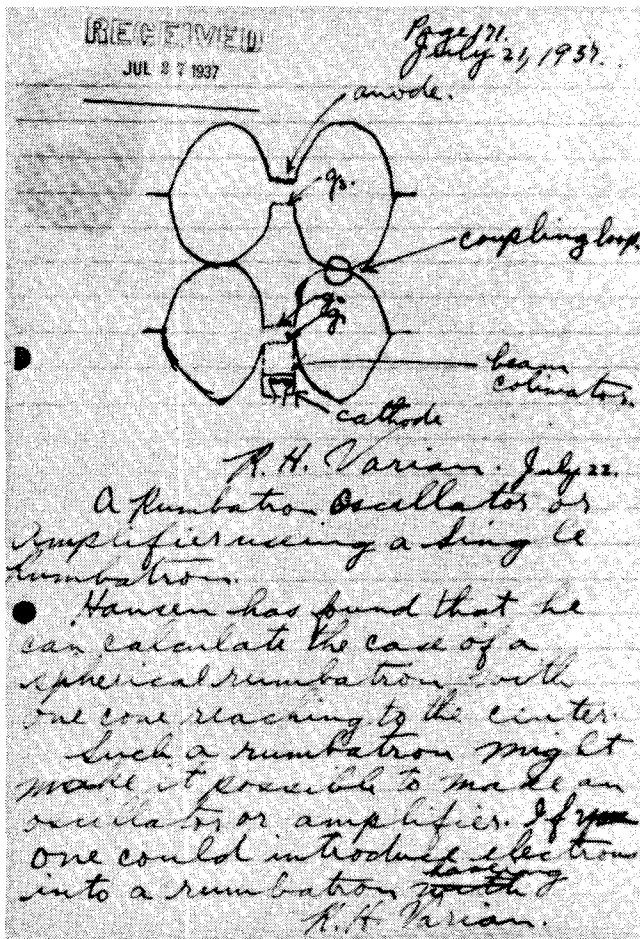 RECEIVED
JUL 27 1937
Page 171.
July 21, 1937.
anode.
g3.
coupling loop
g2
g1
beam
colimator.
cathode
R. H. Varian. July 22.
A Rumbatron Oscillator or
Amplifier using a Single
Rumbatron.
Hansen has found that he
can calculate the case of a
spherical rumbatron with
one cone reaching to the center.
Such a rumbatron might
make it possible to made an
oscillator or amplifier. If
one could introduce electrons
into a rumbatron with having
R. H. Varian.